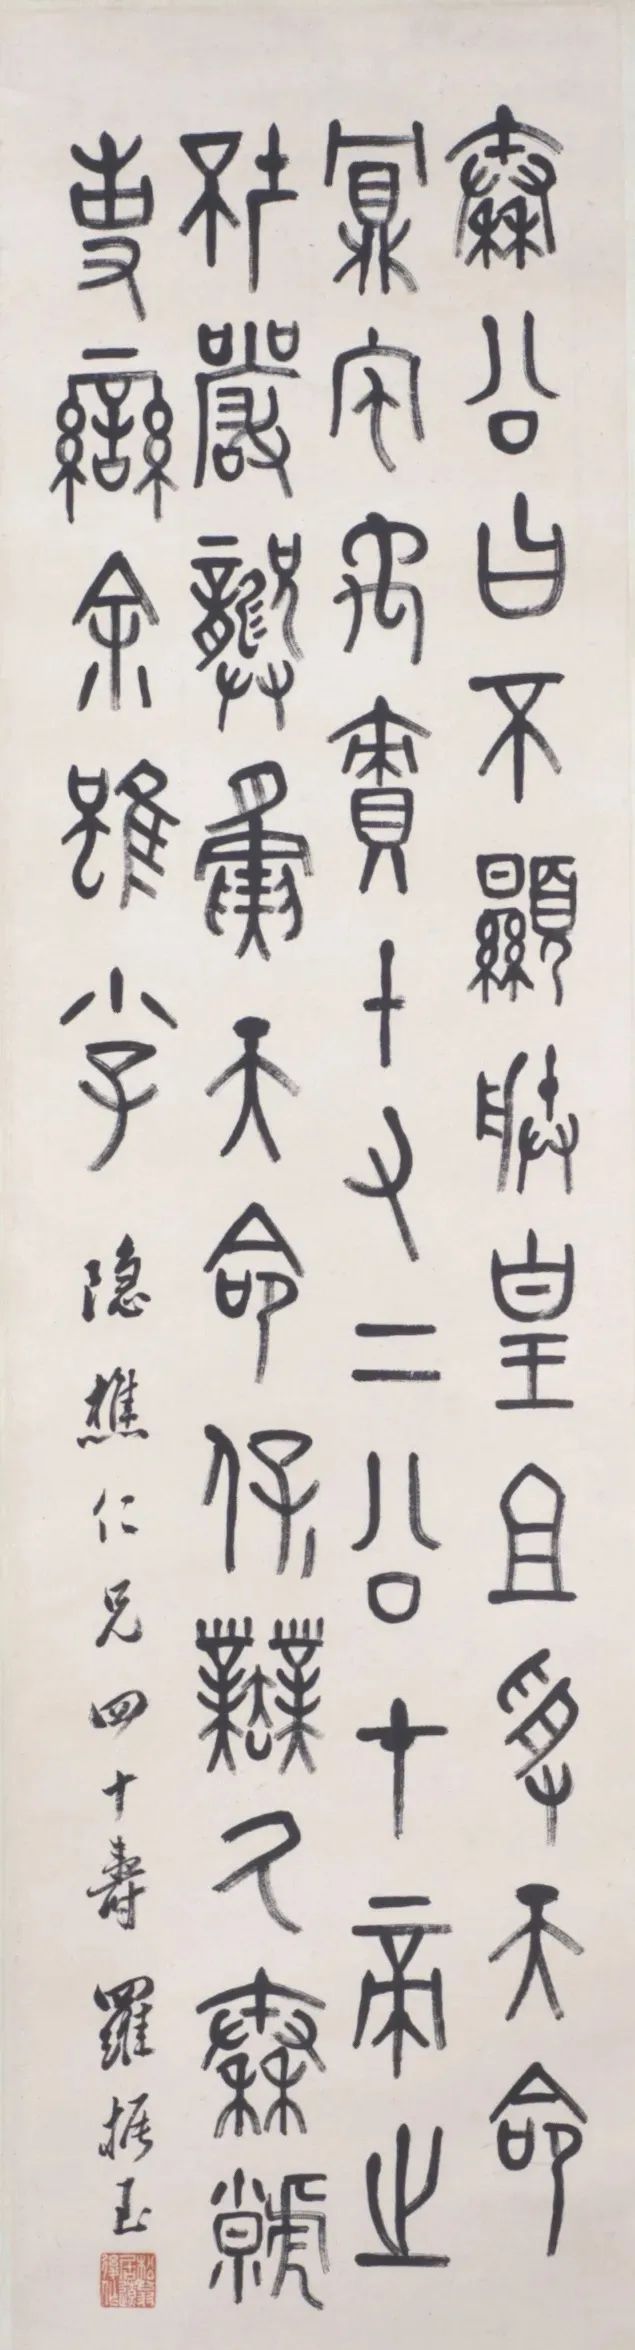 秦公曰不顯朕皇且受天命
鼏宅禹責十又二公才帝之
坏嚴龏夤天命保業氒秦虩
事蠻余雖小子 隱樵仁兄四十壽 羅振玉
松翁居遼後作